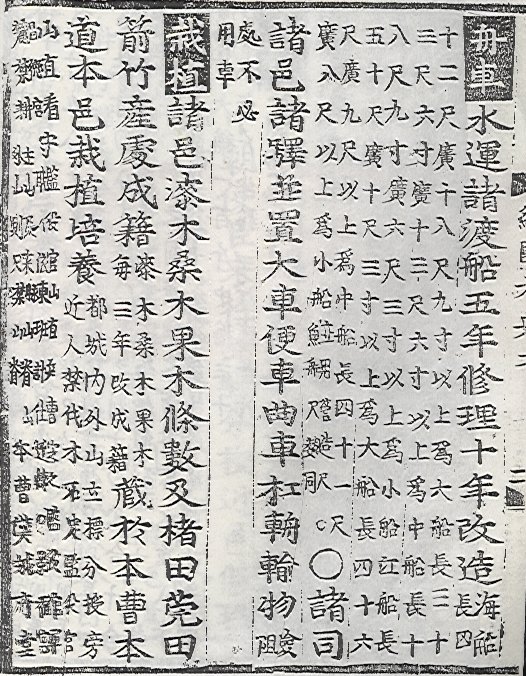 舟車水運諸渡船五年修理十年改造海船長四
十二尺廣十八尺九寸以上爲大船長三十
三尺六寸廣十三尺六寸以上爲中船長十
八尺九寸廣六尺三寸以上爲小船江船長
五十尺廣十尺三寸以上爲大船長四十六
尺廣九尺以上爲中船長四十一尺
廣八尺以上爲小船 營造尺
○諸司
諸邑諸驛並置大車便車曲車杠輈輸物 阻
處不必
用車
栽植諸邑漆木桑木果木條數及楮田莞田
箭竹產處成籍漆木桑木果木每三年改成籍藏於本曹本
道本邑栽植培養都城內外山立標分授旁
近人禁伐木石定監役官
山直看守